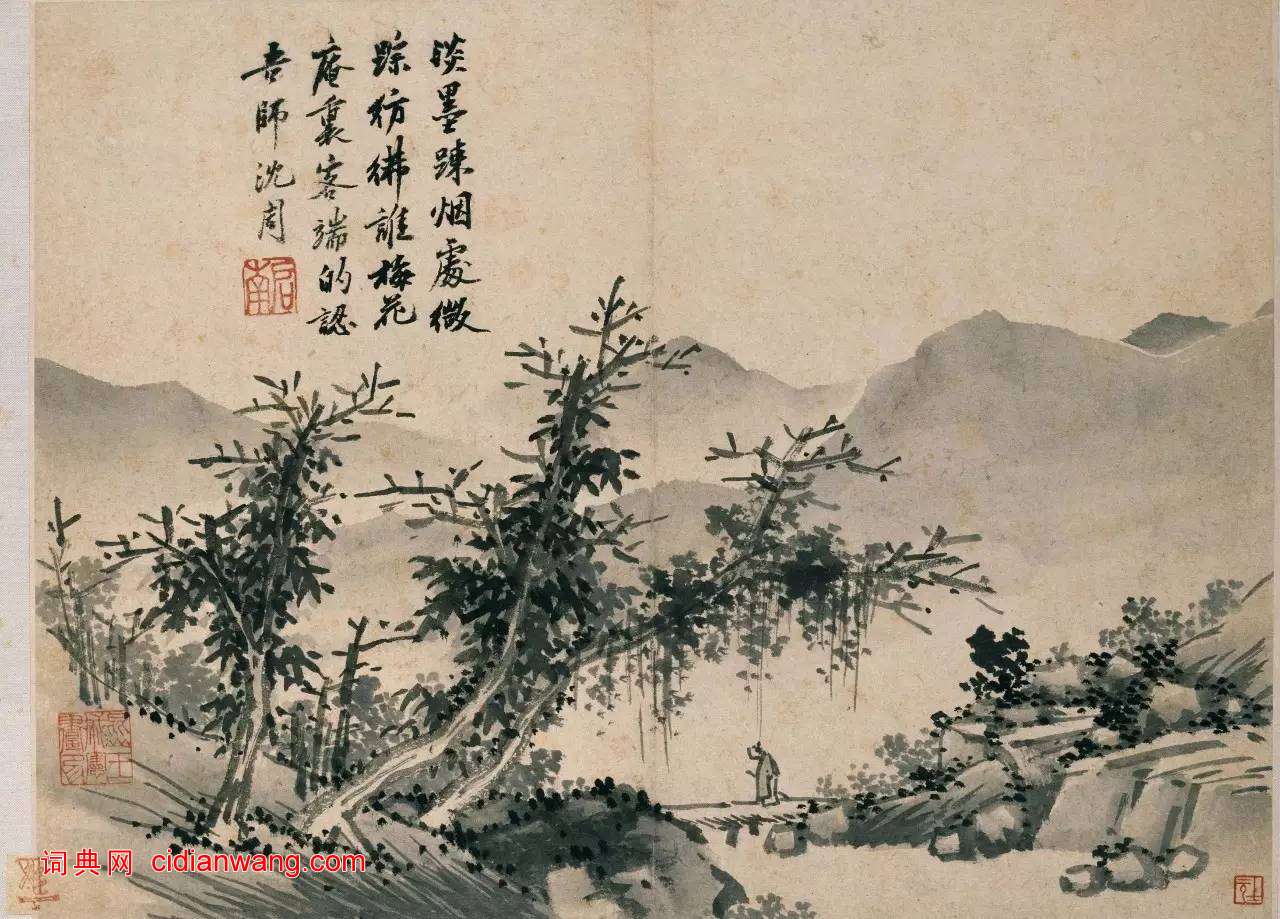 淡墨踈烟處微
踪彷彿誰梅花
庵裏客端的認
吾師沈周
启南
词典网 cidianwang.com